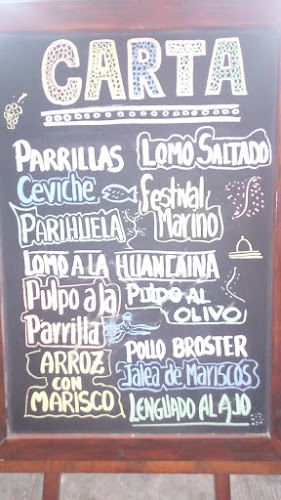 CARTA
PARRILLAS
LOMO SALTADO
Ceviche
Festival
Marino
PARIHUELA
LOMO A LA HUANCAINA
Pulpo a la
Parrilla
PULPO AL
OLIVO
ARROZ
CON
MARISCO
POLLO BROSTER
Jalea de Mariscos
LENGUADO AL AJO